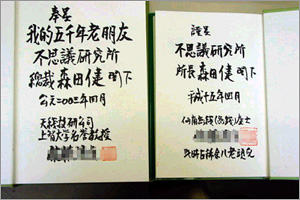 奉呈
我的五千年老朋友
不思議研究所
總裁 森田健 閣下
公元二〇〇三年四月
天線技研公司
上智大学名誉教授
謹呈
不思議研究所
所長 森田健 閣下
平成十五年四月